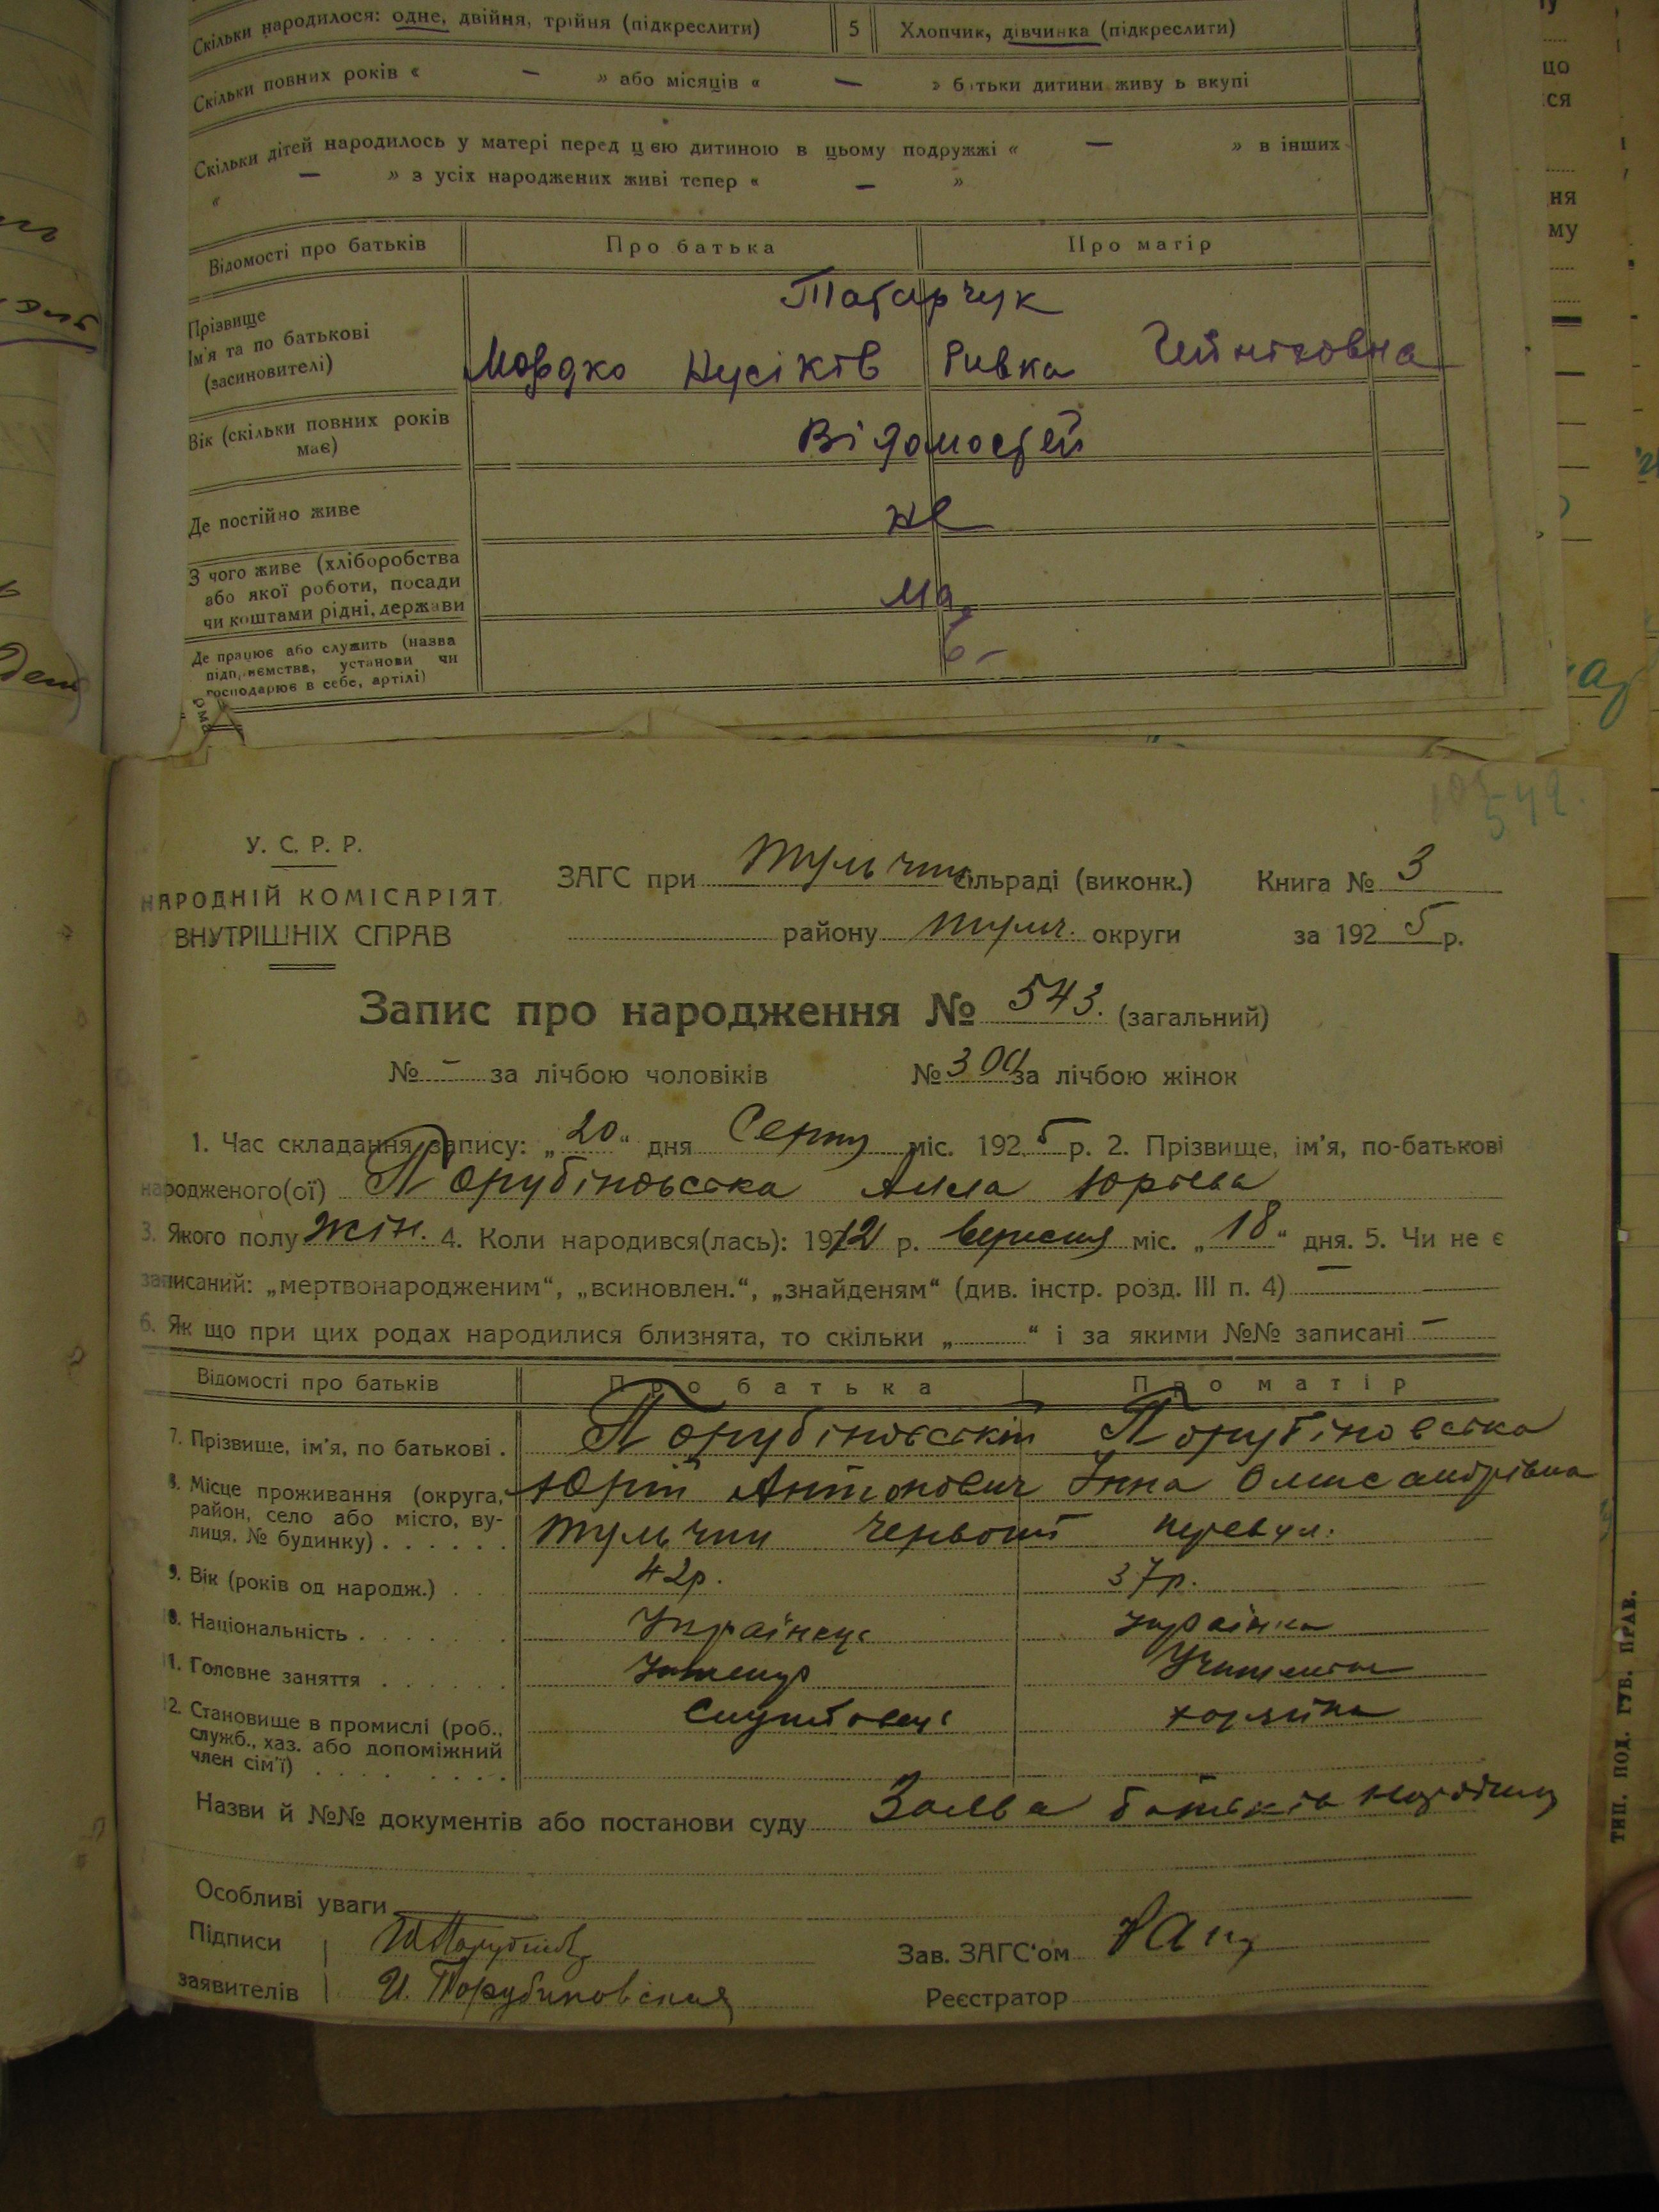 Скільки народилося: одне, двійня, трійня (підкреслити) 5 Хлопчик, дівчинка (підкреслити)
Скільки повних років « — » або місяців « — » б тьки дитини живу ь вкупі
Скільки дітей народилось у матері перед цею дитиною в цьому подружжі « — » в інших
« — » з усіх народжених живі тепер « — »
Відомості про батьків Про батька Про матір
Татарчук
Прізвище
Ім'я та по батькові
(засиновителі)
Мордко Нусіків Ривка
Вік (скільки повних років
має)
Відомостей
Де постійно живе
не
З чого живе (хліборобства
або якої роботи, посади
чи коштами рідні, держави
ма
Де працює або служить (назва
підприємства, установи чи
господарює в себе, артілі)
є –
542.
У. С. Р. Р.
НАРОДНІЙ КОМІСАРІЯТ
ВНУТРІШНІХ СПРАВ
ЗАГС при Тульчин сільраді (виконк.) Книга № 3
району Тульч. округи за 192 5 р.
Запис про народження № 543. (загальний)
№ – за лічбою чоловіків № 300 за лічбою жінок
1. Час складання запису: „ 20 “ дня Серпня міс. 192 5 р. 2. Прізвище, ім'я, по-батькові
народженого(ої) Порубіновська Алла Юріева
3. Якого полу жін. 4. Коли народився(лась): 1912 р. вересня міс. „ 18 “ дня. 5. Чи не є
записаний: „мертвонародженим“, „всиновлен.“, „знайденям“ (див. інстр. розд. III п. 4) –
6. Як що при цих родах народилися близнята, то скільки „ “ і за якими №№ записані –
Відомості про батьків Про батька Про матір
7. Прізвище, ім'я, по батькові . Порубіновський Порубіновська
8. Місце проживання (округа, Юрій Антонович Інна Олександрівна
район, село або місто, ву-
лиця, № будинку) . . . . . . Тульчин Червоний перевул.
9. Вік (років од народж.) . . 42р. 37р.
10. Національність . . . . . . Українець Українка
11. Головне заняття . . . . . . Інженер Учителька
12. Становище в промислі (роб., Службовець хазяйка
служб., хаз. або допоміжний
член сім'ї) . . . . . . . .
Назви й №№ документів або постанови суду Заява батьків
Особливі уваги
Підписи
заявителів И. Порубиновская
Зав. ЗАГС'ом
Реєстратор
ТИП. ПОД. ГУБ. ПРАВ.